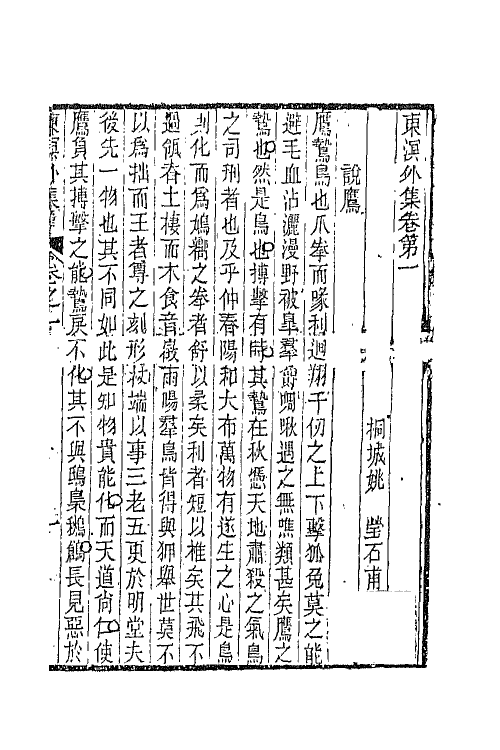 東溟外集卷第一
桐城姚 瑩石甫
說鷹
鷹鷙鳥也爪拳而喙利迴翔千仞之上下擊狐兔莫之能
避毛血沾灑漫野被臯羣爵啁啾遇之無噍類甚矣鷹之
鷙也然是鳥也搏擊有時其鷙在秋憑天地肅殺之氣鳥
之司刑者也及乎仲春陽和大布萬物有遂生之心是鳥
則化而爲鳩嚮之拳者舒以柔矣利者短以椎矣其飛不
過瓴脊土棲而木食音嶶雨暘羣鳥皆得與狎舉世莫不
以爲拙而王者尊之刻形杖端以事三老五更於明堂夫
後先一物也其不同如此是知物貴能化而天道尙仁使
鷹負其搏擊之能鷙戾不化其不與鴟梟鵂鶹長見惡於
東溟外集 卷之一